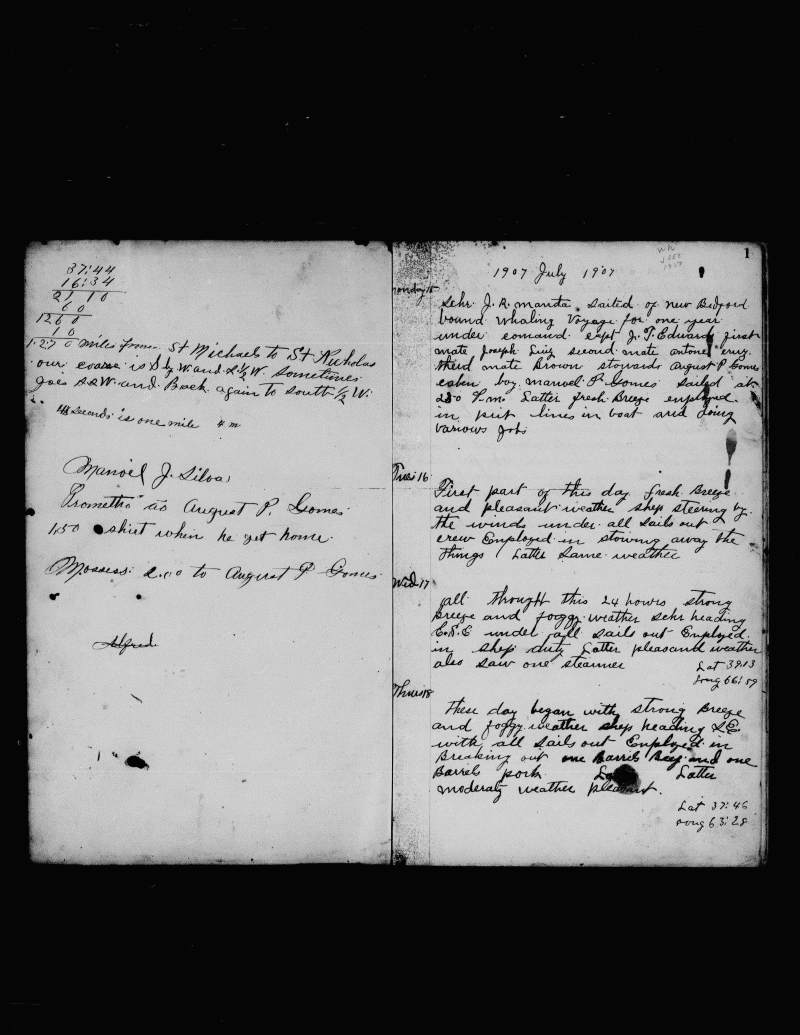 37:44
16:34
21 10
60
1260
10
1.270 miles from St Michaels to St Nicholas
our course is S by W. and S ½ W. sometimes
goes S S W. and Back again to South ½ W.
48 seconds is one mile 4 m
Manoel J. Silva
Prometho ao August P. Gomes
1.50 shirt when he get home.
Mossess. 2.00 to August P Gomes
Alfred
1
1907 July 1907
monday 15
Schr. J. R. manta. sailed of New Bedford
bound Whaling Voyage for one year
under comand capt J. T. Edwards first
mate Joseph Luiz second mate antone
third mate Brown stowards August P Gomes
boy. manoel P. Gomes sailed at
2.30 P.m. Latter fresh Breeze employed
in put lines in boat and doing
varioves Jobs
Tues 16
First part of this day fresh Breeze
and pleasant weather shep steering by.
the winds under all sails out
crew Employed in stowing away the
things Latte same weather
Wed. 17
all thought this 24 hours strong
Breeze and foggy weather Schr heading
E.S.E under all sails out Employed
in shep duty Latter pleasand weather
ales saw one steamer
Lat 39:13
Long 66:59
Thurs 18
These day began with strong Breeze
and foggy weather shep heading S.E
with all sails out Employed in
Breaking out one Barrels Beef and one
Barrels pork. Latter
moderaty weather pleasant.
Lat 37:46
Long 63:28